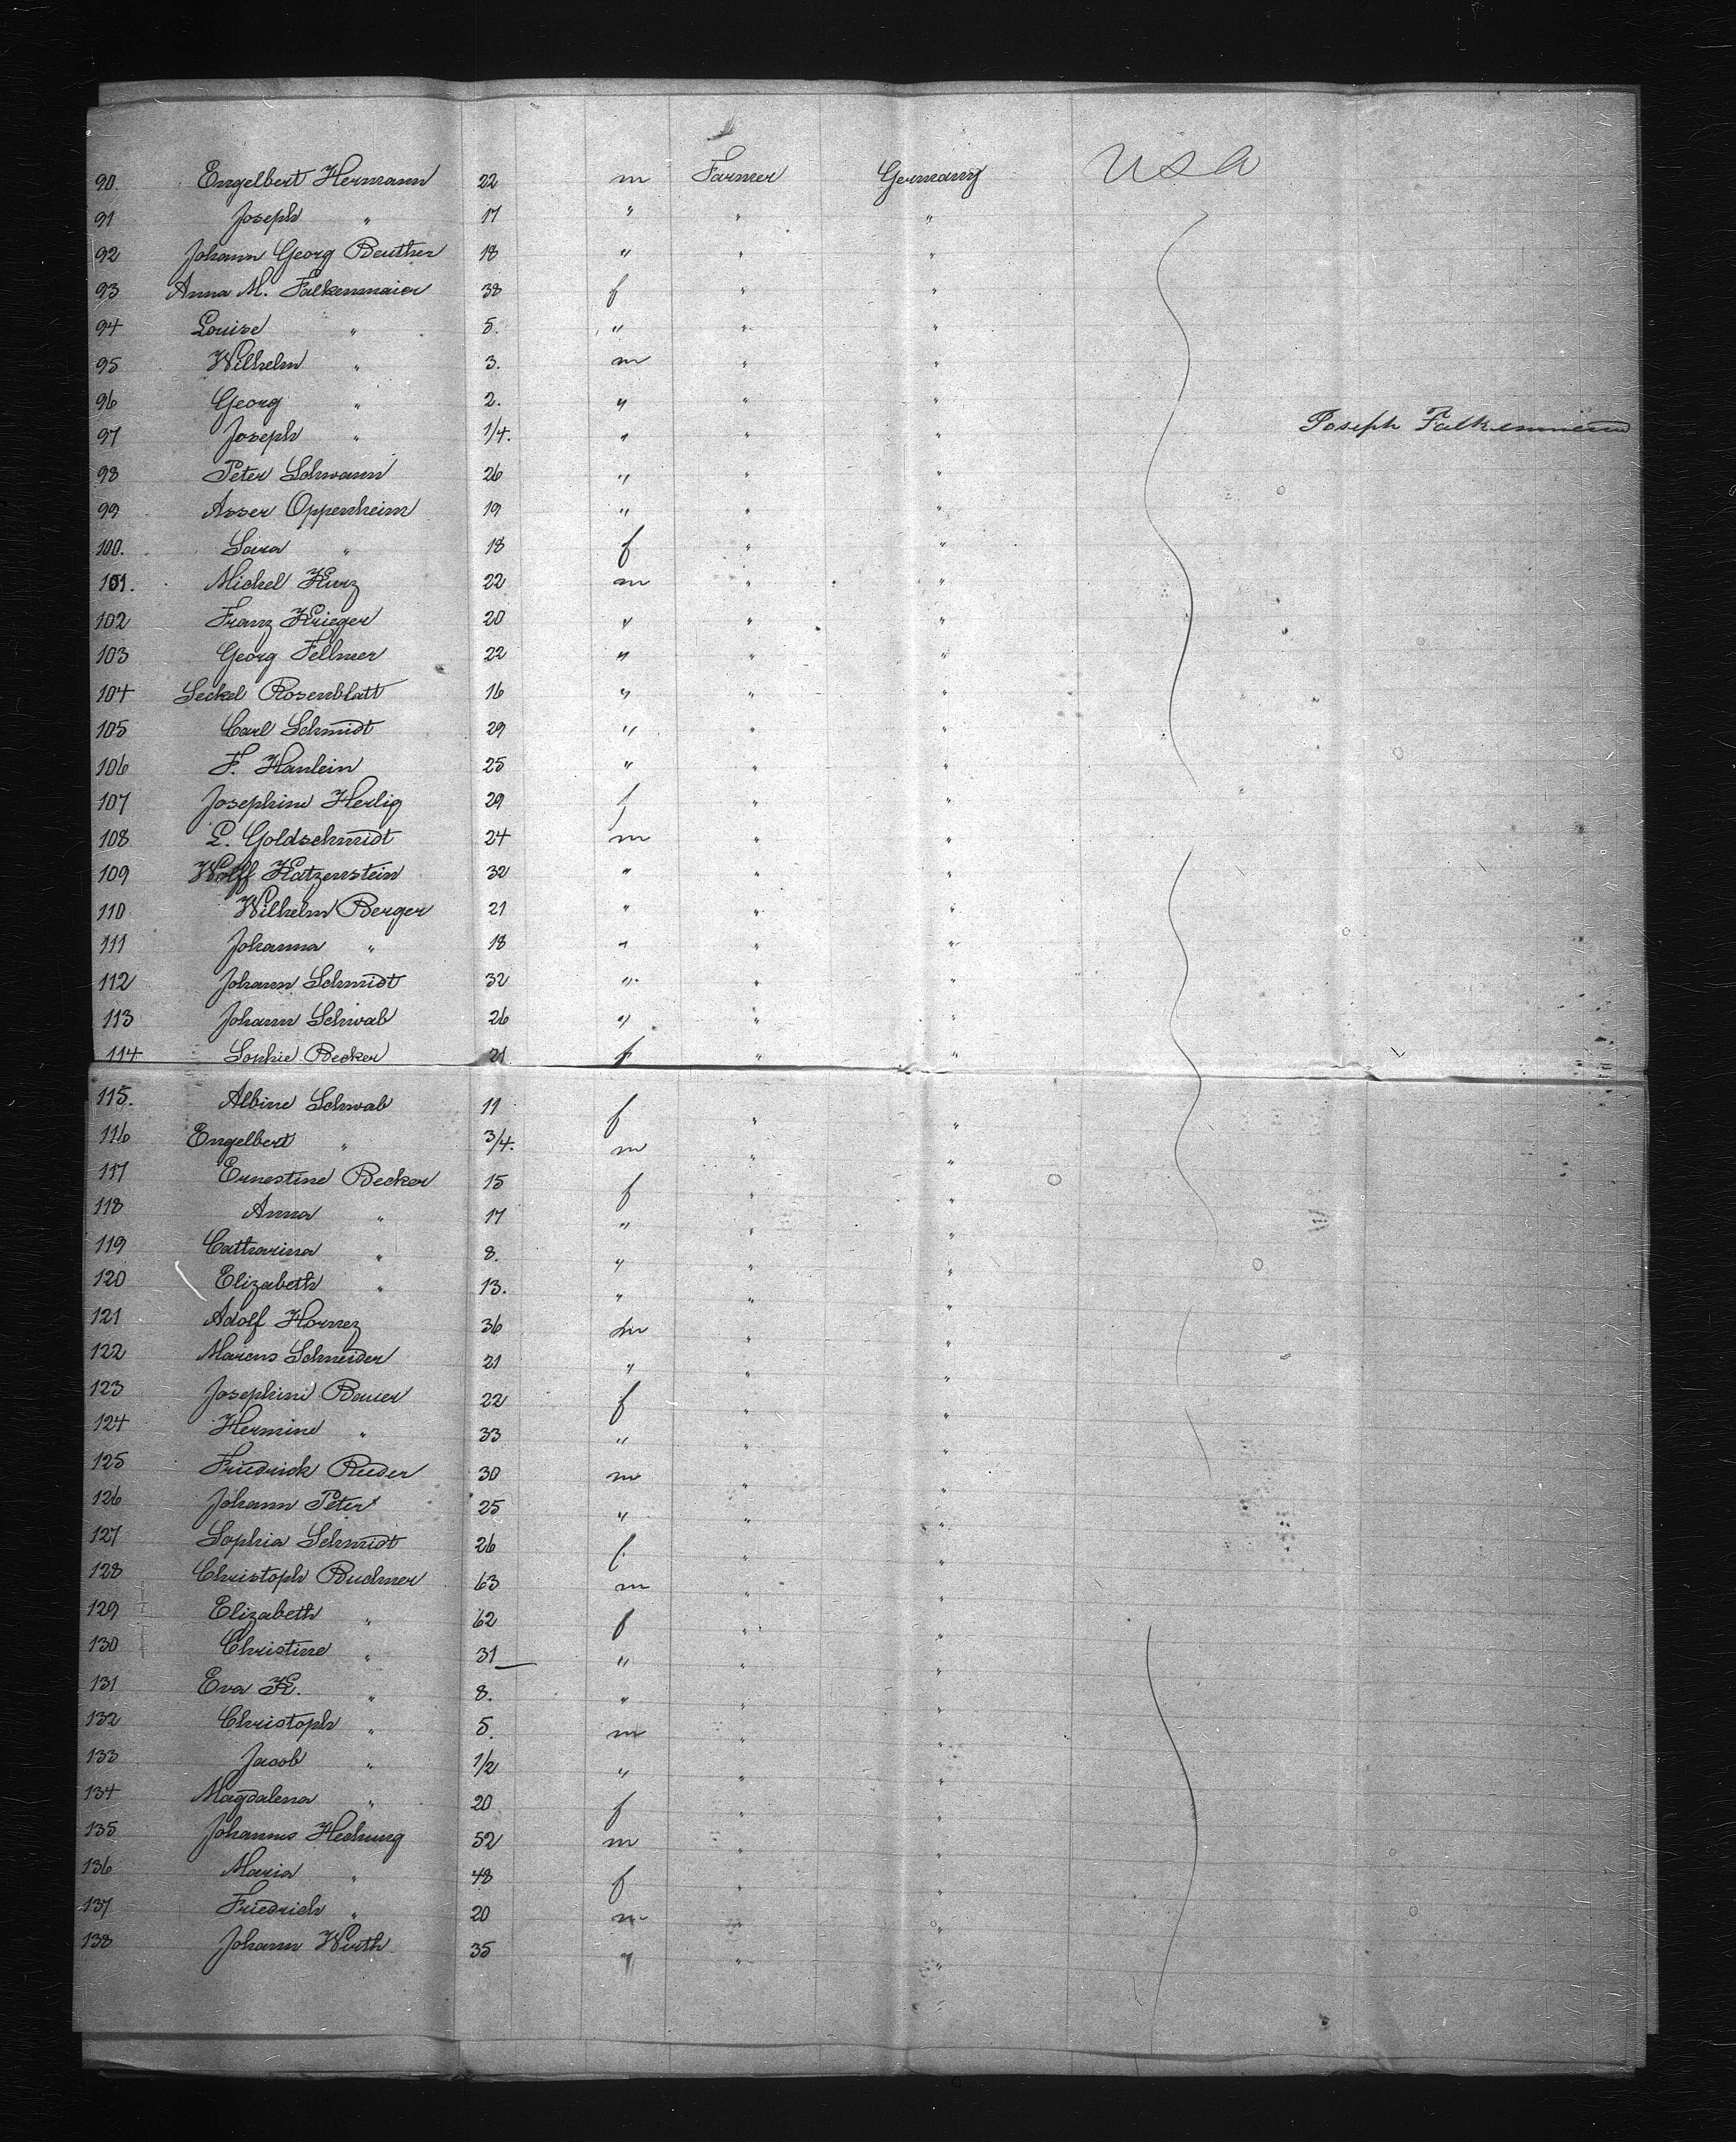 90. Engelbert Hermann 22 m Farmer Germany USA
91 Joseph " 17 " " "
92 Johann Georg Beuther 18 " " "
93 Anna M. Falkenmaier 38 f " "
94 Louise " 5. " " "
95 Wilhelm " 3. m " "
96 Georg " 2. " " "
97 Joseph " 1/4. " " " Joseph
98 Peter Schwann 26 " " "
99 Asser Oppenheim 19 " " "
100. Sara " 18 f " "
101. Michel Kurz 22 m " "
102 Franz Krieger 20 " " "
103 Georg Fellmer 22 " " "
104 Seckel Rosenblatt 16 " " "
105 Carl Schmidt 29 " " "
106 F. Hanlein 25 " " "
107 Josephine Herlig 29 f " "
108 L. Goldschmidt 24 m " "
109 Wolff Katzenstein 32 " " "
110 Wilhelm Berger 21 " " "
111 Johanna " 18 " " "
112 Johann Schmidt 32 " " "
113 Johann Schwab 26 " " "
114 Sophie Becker 21 f " "
115. Albine Schwab 11 f " "
116 Engelbert " 3/4. m " "
117 Ernestine Becker 15 f " "
118 Anna " 17 " " "
119 Catharina " 8. " " "
120 Elizabeth " 13. " " "
121 Adolf Hornez 36 m " "
122 Marcus Schneider 21 " " "
123 Josephine Bauer 22 f " "
124 Hermine " 33 " " "
125 Friedrich Rieder 30 m " "
126 Johann Peter 25 " " "
127 Sophia Schmidt 26 f " "
128 Christoph Buchner 63 m " "
129 Elizabeth " 62 f " "
130 Christine " 31 " " "
131 Eva K. " 8. " " "
132 Christoph " 5. m " "
133 Jacob " 1/2 " " "
134 Magdalena " 20 f " "
135 Johannes Hechung 52 m " "
136 Maria " 48 f " "
137 Friedrich " 20 m " "
138 Johann Wirth 35 " " "